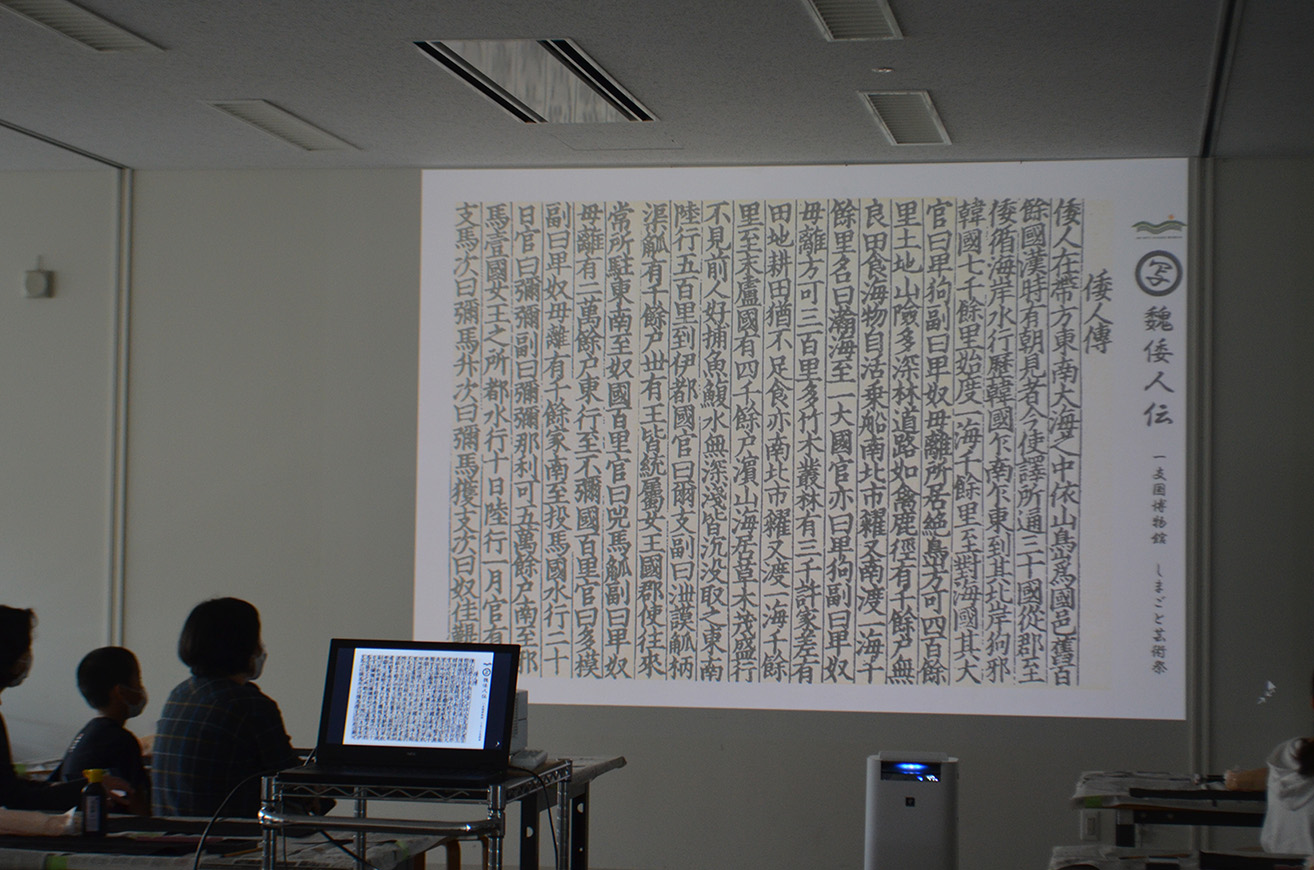 写 魏倭人伝 一支国博物館 しまごと芸術祭
倭人傳
倭人在帶方東南大海之中依山島爲國邑舊百
餘國漢時有朝見者今使譯所通三十國從郡至
倭循海岸水行歷韓國乍南乍東到其北岸狗邪
韓國七千餘里始度一海千餘里至對海國其大
官曰卑狗副曰卑奴毋離所居絶島方可四百餘
里土地山險多深林道路如禽鹿徑有千餘戸無
良田食海物自活乗船南北市糴又南渡一海千
餘里名曰瀚海至一大國官亦曰卑狗副曰卑奴
毋離方可三百里多竹木叢林有三千許家差有
田地耕田猶不足食亦南北市糴又渡一海千餘
里至末盧國有四千餘戸濵山海居草木茂盛行
不見前人好捕魚鰒水無深淺皆沉没取之東南
陸行五百里到伊都國官曰爾支副曰泄謨觚柄
渠觚有千餘戸丗有王皆統屬女王國郡使往來
常所駐東南至奴國百里官曰兕馬觚副曰卑奴
毋離有二萬餘戸東行至不彌國百里官曰多模
副曰卑奴毋離有千餘家南至投馬國水行二十
日官曰彌彌副曰彌彌那利可五萬餘戸南至邪
馬壹國女王之所都水行十日陸行一月官有
支馬次曰彌馬升次曰彌馬獲支次曰奴佳鞮